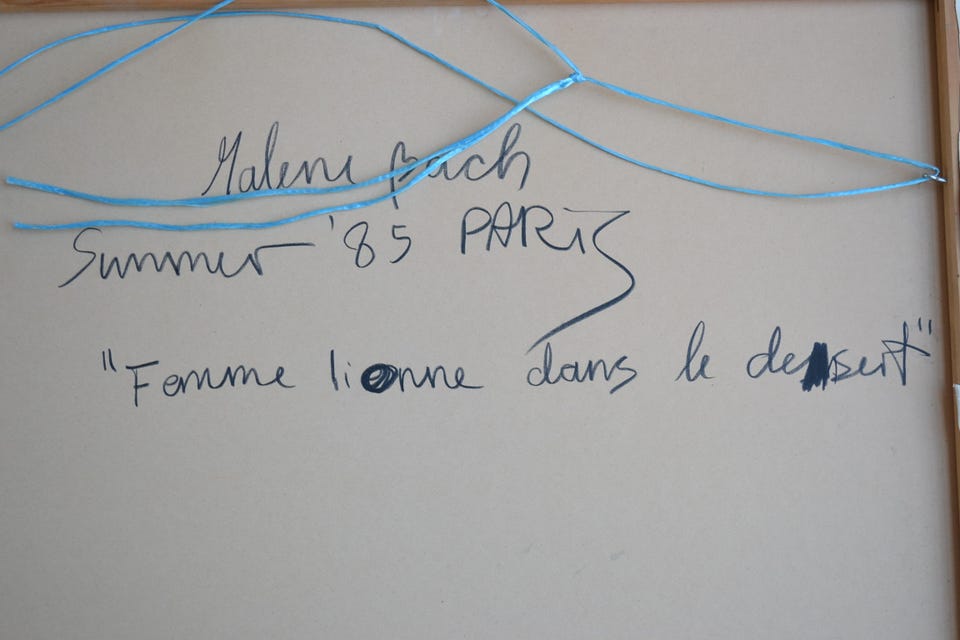 Malene Bach
Summer '85 PARIS
"Femme lionne dans le desert"